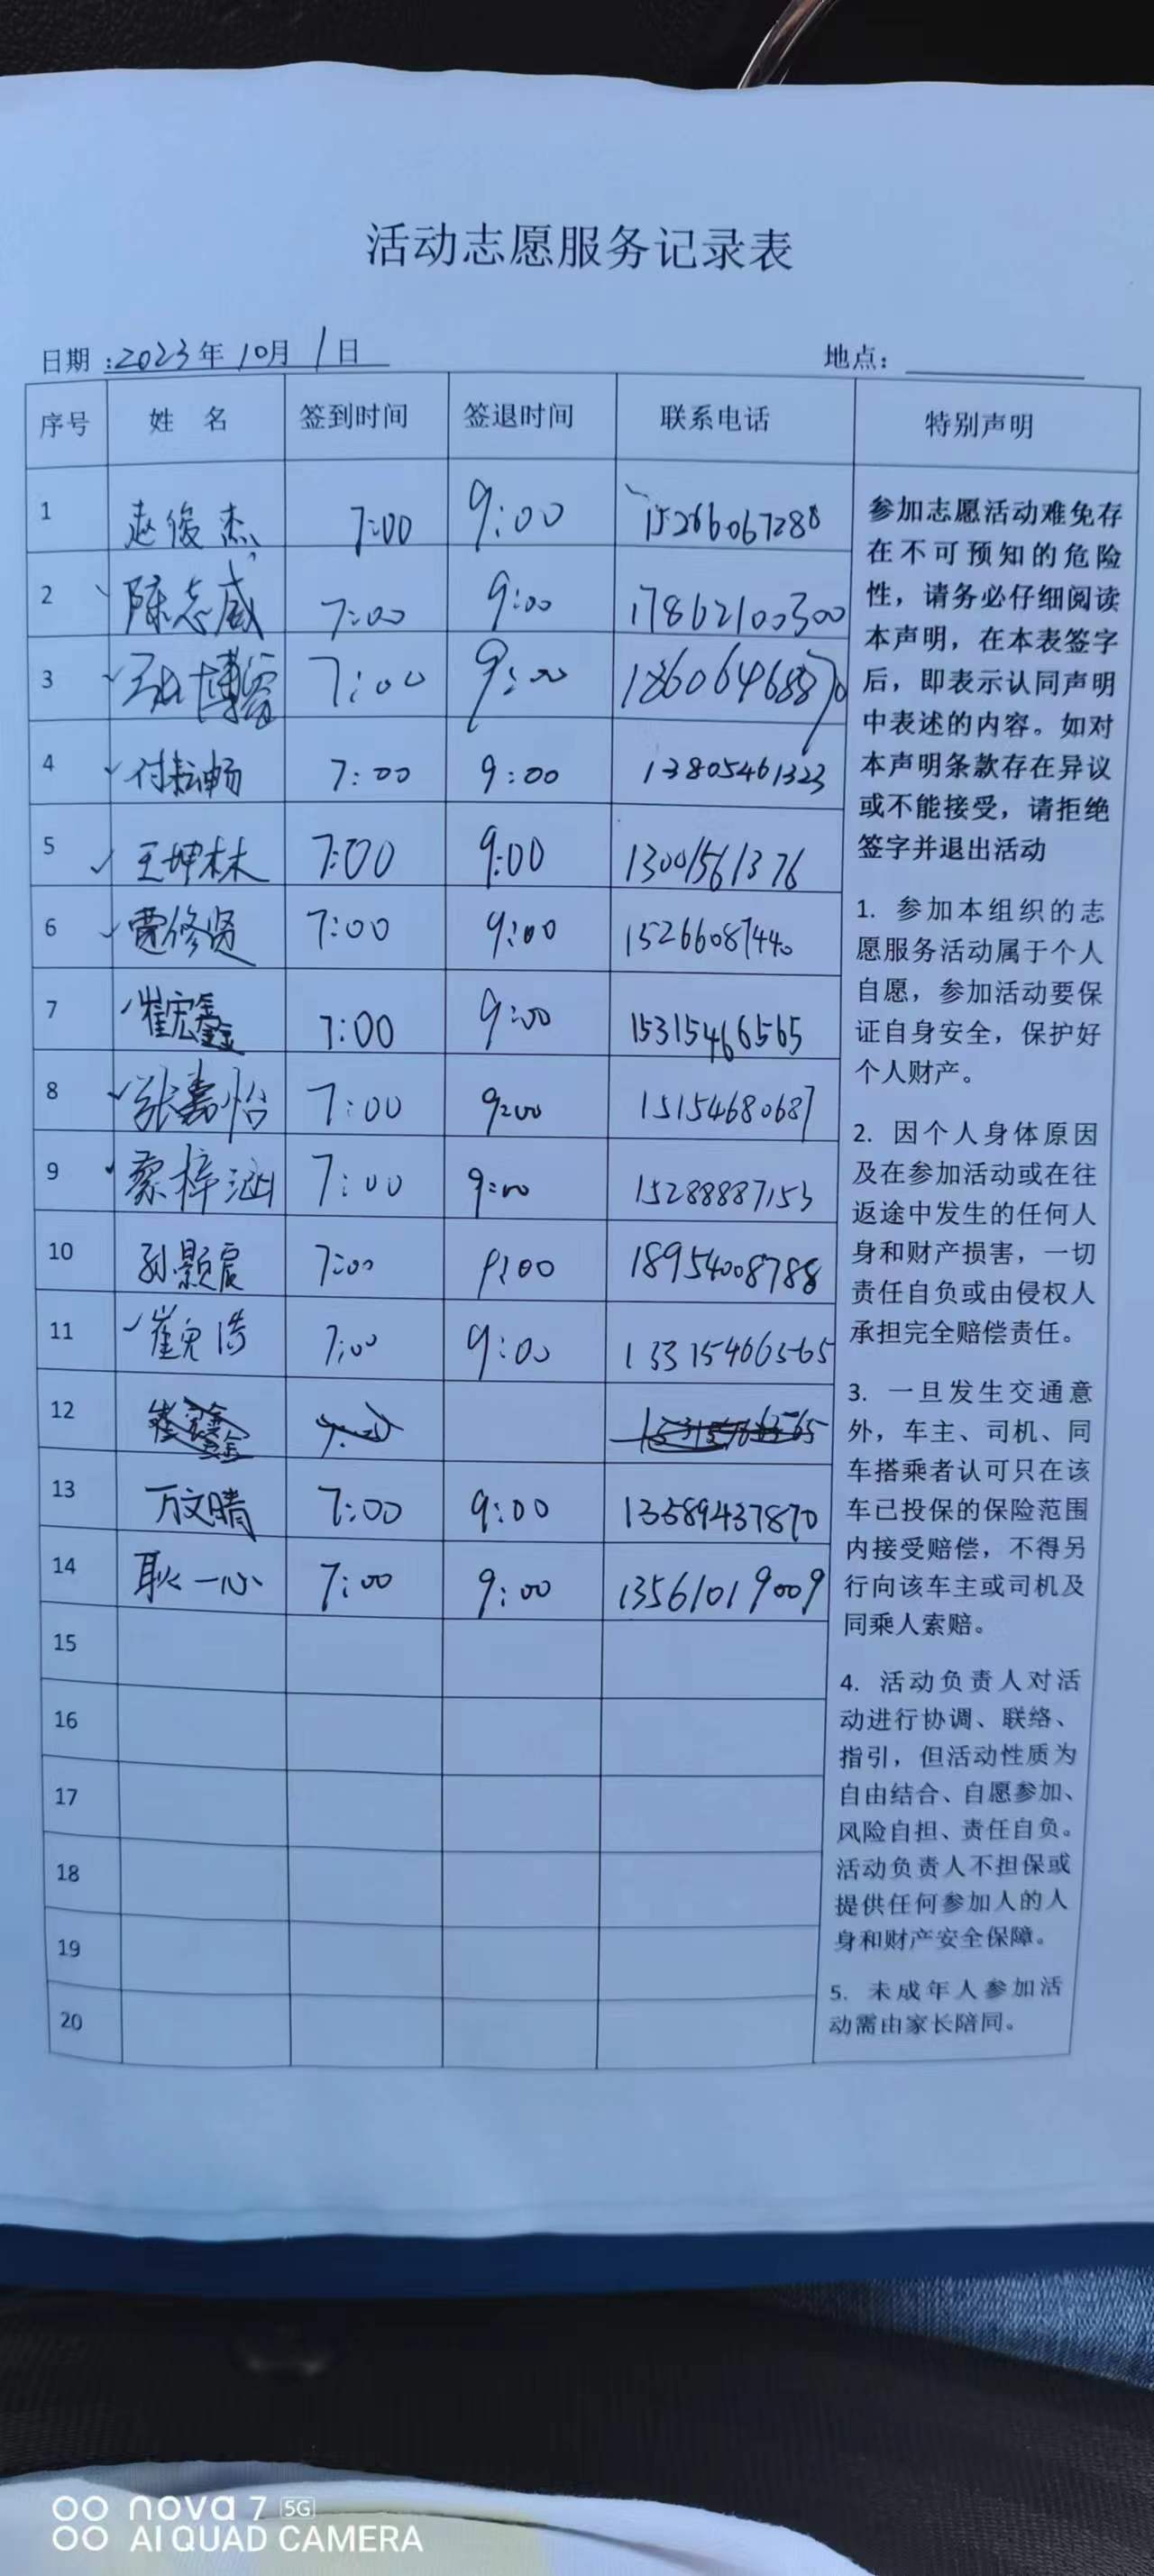 活动志愿服务记录表
日期:2023年10月1日 地点:
序号 姓名 签到时间 签退时间 联系电话 特别声明
1 赵俊杰 7:00 9:00 15266067288
2 陈志威 7:00 9:00 17862100300
3 7:00 9:00
4 付耘畅 7:00 9:00 13805461323
5 王坤林 7:00 9:00 13001561376
6 贾修贤 7:00 9:00 15266087440
7 崔宏鑫 7:00 9:00 15315466565
8 张嘉怡 7:00 9:00 15154680687
9 蔡梓涵 7:00 9:00 15288887153
10 孙颢宸 7:00 9:00 18954008788
11 7:00 9:00 133154666565
12
13 万文晴 7:00 9:00 13589437870
14 耿一心 7:00 9:00 13561019009
15
16
17
18
19
20
参加志愿活动难免存
在不可预知的危险
性，请务必仔细阅读
本声明，在本表签字
后，即表示认同声明
中表述的内容。如对
本声明条款存在异议
或不能接受，请拒绝
签字并退出活动
1. 参加本组织的志
愿服务活动属于个人
自愿，参加活动要保
证自身安全，保护好
个人财产。
2. 因个人身体原因
及在参加活动或在往
返途中发生的任何人
身和财产损害，一切
责任自负或由侵权人
承担完全赔偿责任。
3. 一旦发生交通意
外，车主、司机、同
车搭乘者认可只在该
车已投保的保险范围
内接受赔偿，不得另
行向该车主或司机及
同乘人索赔。
4. 活动负责人对活
动进行协调、联络、
指引，但活动性质为
自由结合、自愿参加、
风险自担、责任自负。
活动负责人不担保或
提供任何参加人的人
身和财产安全保障。
5. 未成年人参加活
动需由家长陪同。
nova 7 5G
AI QUAD CAMERA